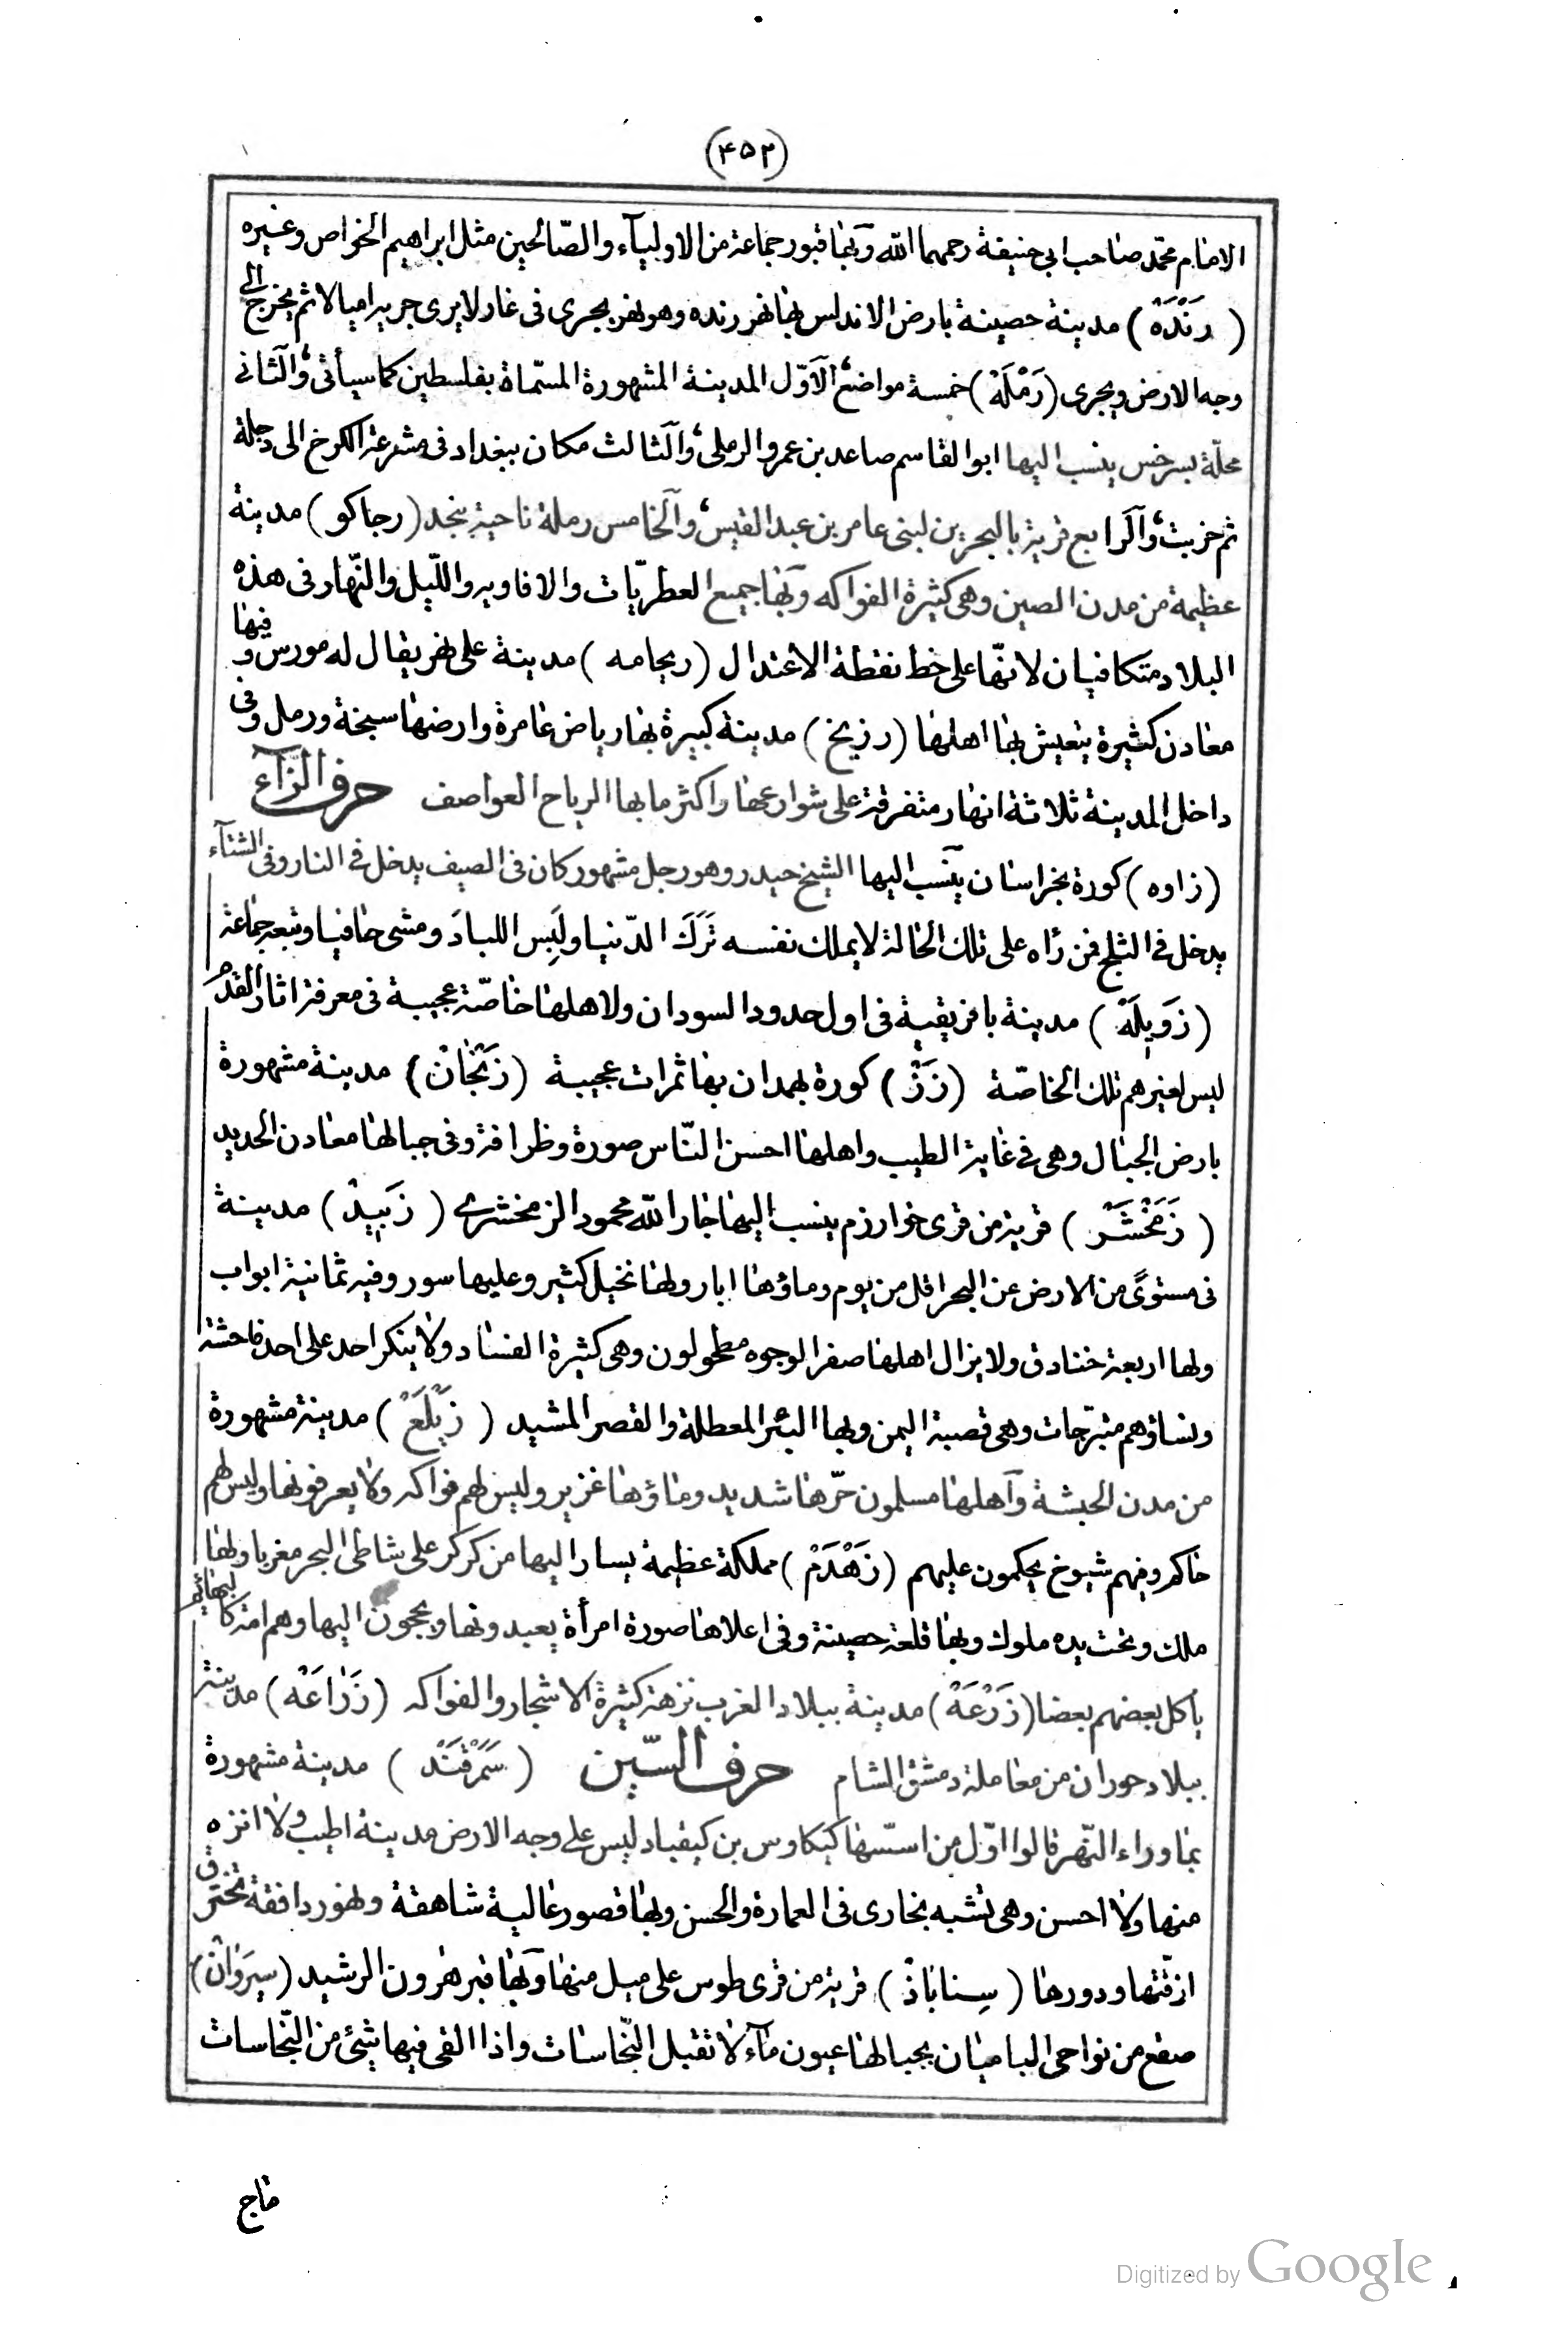 (۴۵۲)
الامام محمد صاحب ابى حنيفة رحمهما الله وبها قبور جماعة من الاوليآء والصّالحين مثل ابراهيم الخواص وغيره
( رَنْدَهْ ) مدينة حصينة بارض الاندلس بها نهر رنده وهو نهر يجرى فى غار لا يرى جريه اميالا ثم يخرج الى
وجه الارض ويجرى ( رَمْلَهْ ) خمسة مواضع الاَوّل المدينة المشهورة المسّماة بفلسطين كما سيأتى والَثانى
محلّة بسرخس ينسب اليها ابوالقاسم صاعد بن عمرو الرملى والَثالث مكان ببغداد فى مشرعة الكرخ الى دجلة
ثم خربت والَرابع قرية بالبحرين لبنى عامر بن عبدالقيس والَخامس رملة ناحية بنجد ( رجاكو ) مدينة
عظيمة من مدن الصين وهى كثيرة الفواكه وبَها جميع العطريّات والافاويه والليل والنّهار فى هذه
البلاد متكافيان لانّها على خط نقطة الاعتدال ( ريجامه ) مدينة على نهر يقال له مورس وفيها
معادن كثيرة يتعيش بها اهلها ( رزيخ ) مدينة كبيرة بها رياض عامرة وارضها سبخة ورمل وفى
داخل المدينة ثلاثة انهار متفرقة على شوارعها واكثر ما بها الرياح العواصف حرف الزّآء
( زاوه ) كورة بخراسان ينَسب اليها الشيخ حيدر وهو رجل مشهور كان فى الصيف يدخل فى النار وفى الشتآء
يدخل فى الثلج فمن رٔاه على تلك الحالة لا يملك نفسه تَرَكَ الدّنيا ولَبِس اللبادَ ومشى حافيا وتبعه جماعة
( زَوِيلَهْ ) مدينة بافريقية فى اول حدود السودان ولاهلها خاصّة عجيبة فى معرفة اثار القدم
ليس لغيرهم تلك الخاصّة ( زَزْ ) كورة بهمدان بها ثمرات عجيبة ( زَنْجَانْ ) مدينة مشهورة
بارض الجبال وهى فى غاية الطيب واهلها احسن النّاس صورة وظرافة وفى جبالها معادن الحديد
( زَمَخْشَرْ ) قرية من قرى خوارزم ينسب اليها جار الله محمود الزمخشرى ( زَبِيدْ ) مدينة
فى مستوىً من الارض عن البحر اقل من يوم وماؤها ابار ولها نخيل كثير وعليها سور وفيه ثمانية ابواب
ولها اربعة خنادق ولا يزال اهلها صفر الوجوه مطحولون وهى كثيرة الفساد ولا ينكر احد على احد فاحشة
ونساؤهم متبرّجات وهى قصبة اليمن وبها البئر المعطلة والقصر المشيد ( زَيْلَعْ ) مدينة مشهورة
من مدن الحبشة وآهلها مسلمون حرّها شديد وماؤها غزير وليس لهم فواكه ولا يعرفونها وليس لهم
حاكم وفيهم شيوخ يحكمون عليهم ( زَهْدَمْ ) مملكة عظيمة يسارا اليها من كركر على شاطى البحر مغربا ولها
ملك وتحت يده ملوك وبها قلعة حصينة وفى اعلاها صورة امرأة يعبدونها ويحجون اليها وهم امة كالبهائم
يأكل بعضهم بعضا ( زَرْعَهْ ) مدينة ببلاد الغرب نزهة كثيرة الاشجار والفواكه ( زَرَاعَهْ ) مدينة
ببلاد حوران من معاملة دمشق الشام حرف السّين ( سَمَرْقَنْد ) مدينة مشهورة
بماوراء النّهر قالوا اوّل من اسسّها كيكاوس بن كيقباد ليس على وجه الارض مدينة اطيب ولا انزه
منها ولا احسن وهى تشبه بخارى فى العمارة والحسن وبها قصور عالية شاهقة ونهور دافقة تخترق
ازقّتها ودورها ( سِناباذْ ) قرية من قرى طوس على ميل منها وبَها قبر هرون الرشيد ( سِيَرَوَانْ )
صقع من نواحى الباميان بجبالها عيون مآء لا تقبل النّجاسات واذا القى فيها شئ من النّجاسات
ماج
Digitized by Google